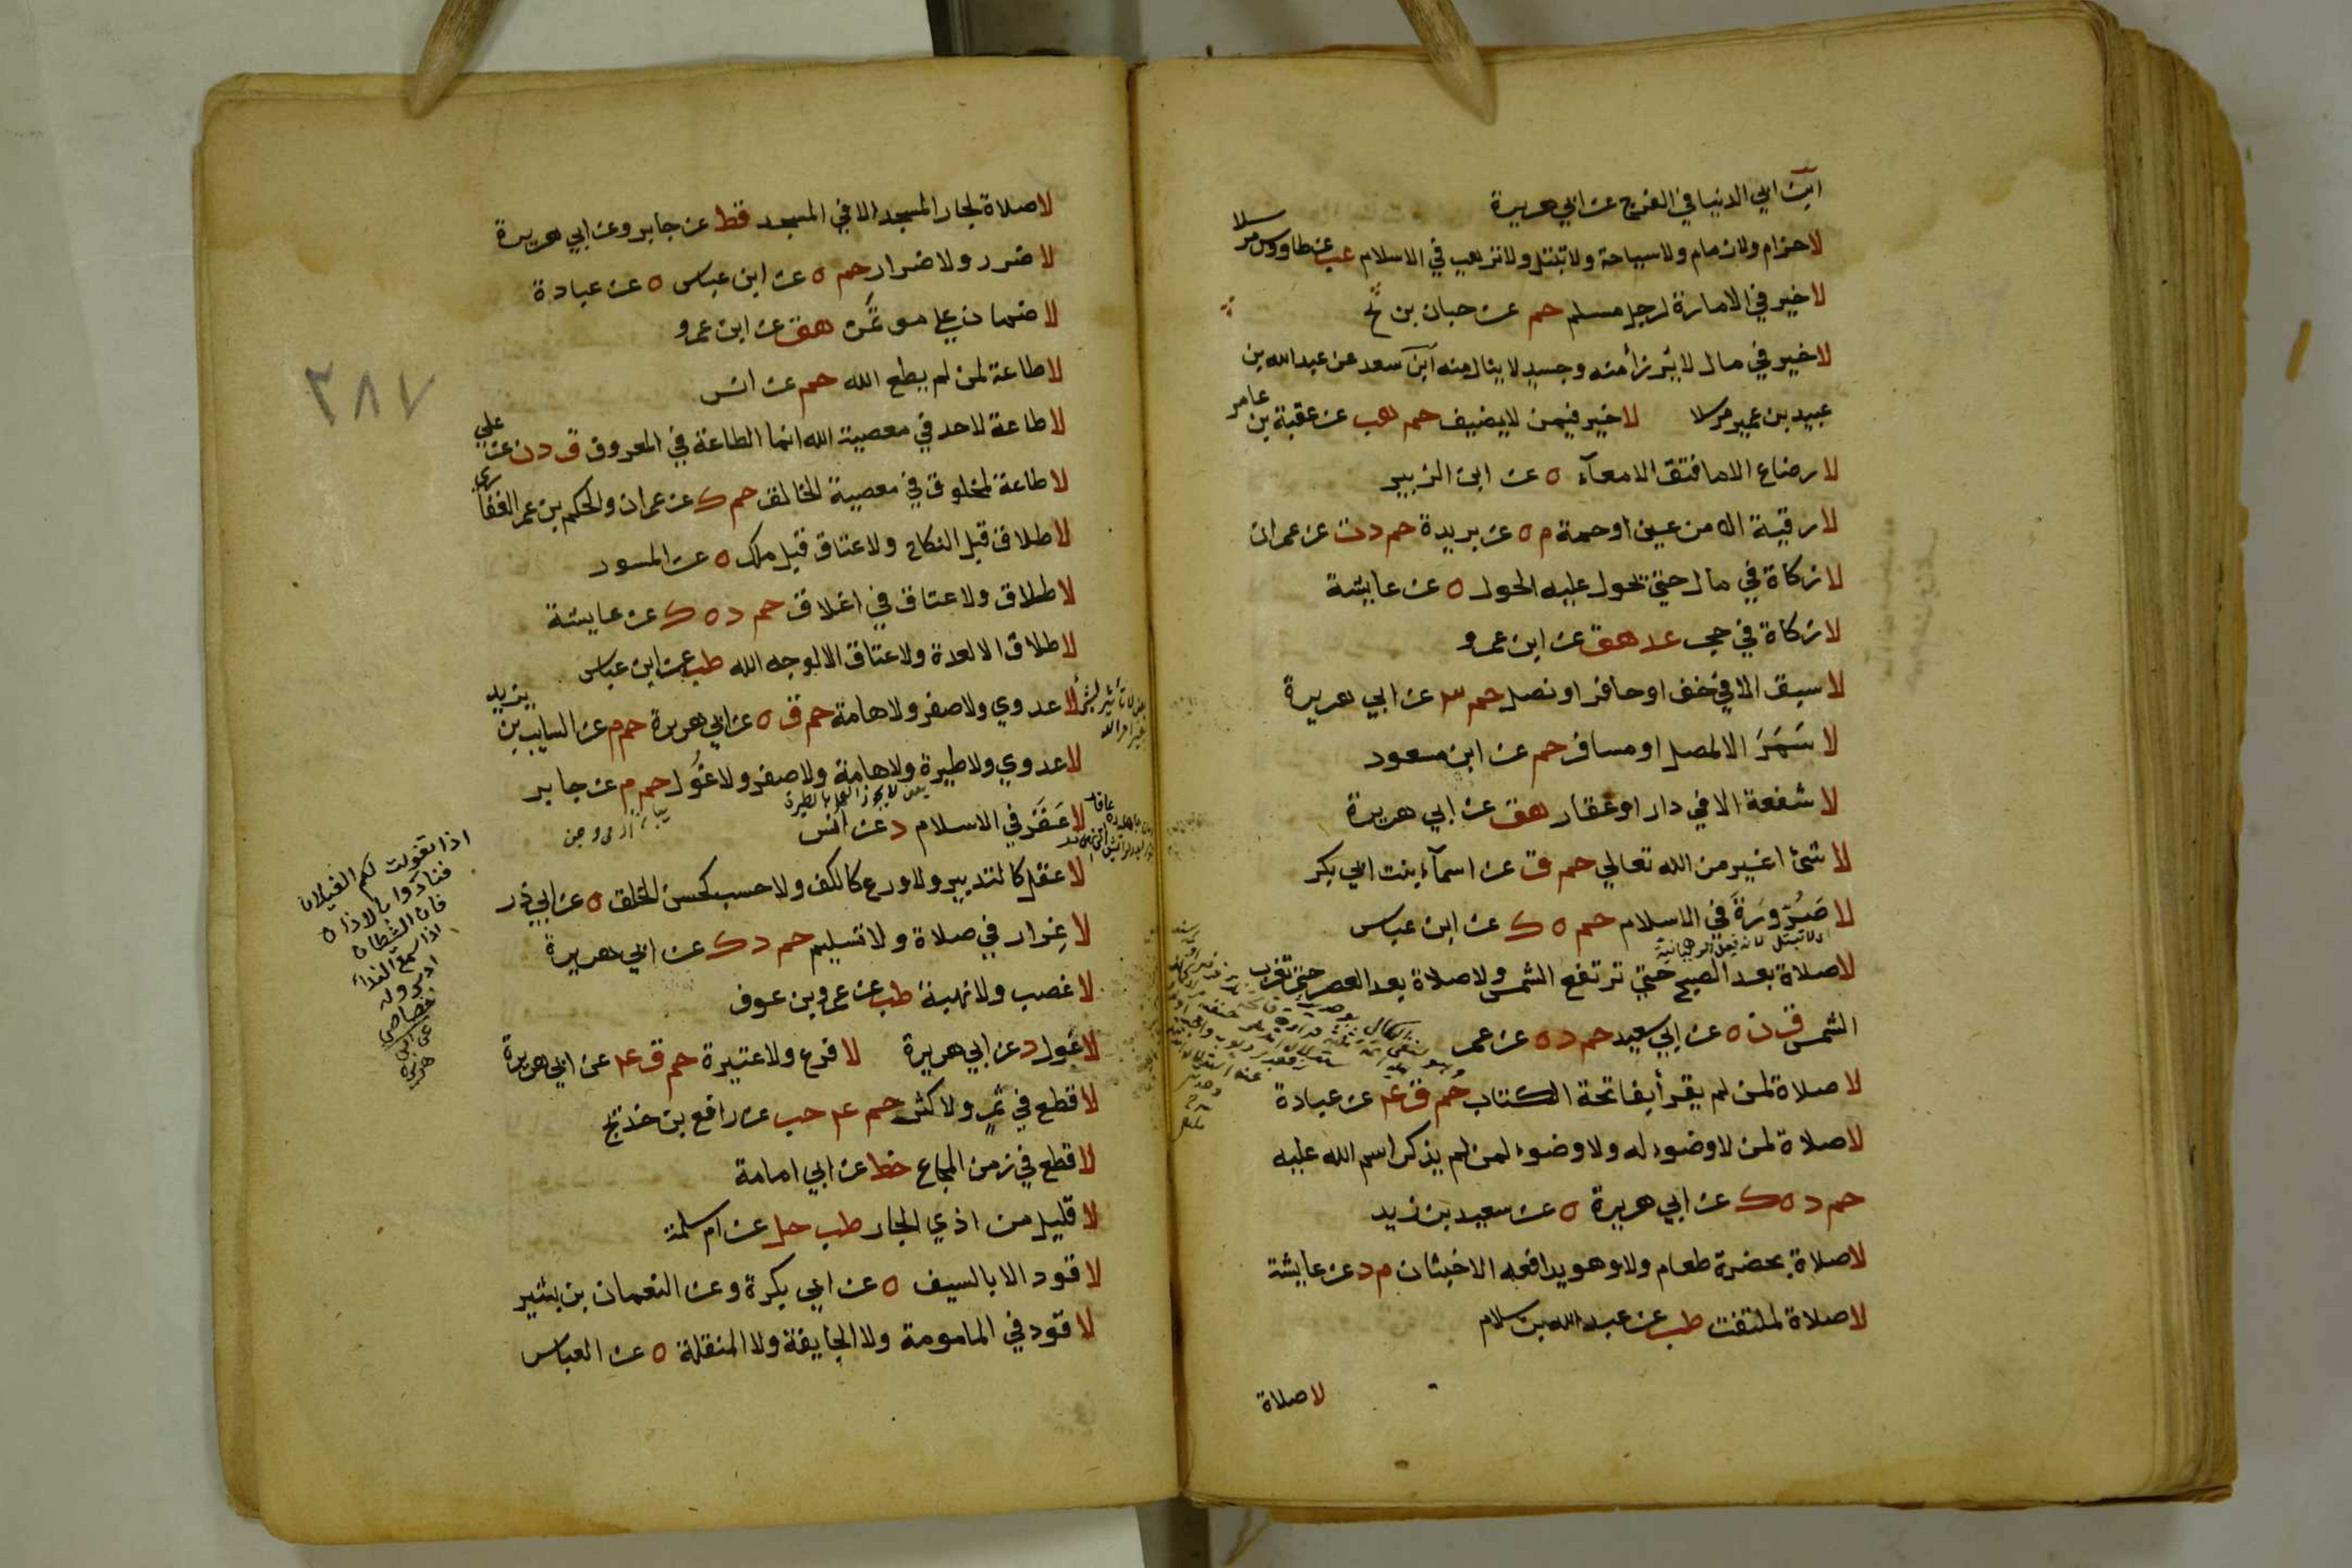 ابن ابي الدنيا في الفرج عن ابي هريرة
لا خزام ولا زمام ولا سياحة ولا تبتل ولا ترهب في الاسلام عب عن طاووس مرسلا
لا خير في الامارة لرجل مسلم حم عن حبان بن بح
لا خير في مال لا يرزأ منه وجسد لا ينال منه ابن سعد عن عبد الله بن
عبيد بن عمير مرسلا لا خير فيمن لا يضيف حم هب عن عقبة بن عامر
لا رضاع الا ما فتق الامعآء ه عن ابن الزبير
لا رقية الا من عين او حمة م ه عن بريدة حم د ت عن عمران
لا زكاة في مال حتي يحول عليه الحول ه عن عايشة
لا زكاة في حجر عد هق عن ابن عمرو
لا سبق الا في خف او حافر او نصل حم ٤ عن ابي هريرة
لا سَمَرَ الا لمصل او مسافر حم عن ابن مسعود
لا شفعة الا في دار او عقار هق عن ابي هريرة
لا شئ اغير من الله تعالي حم ق عن اسمآء بنت ابي بكر
لا صَرُورَةَ في الاسلام حم ه ك عن ابن عباس
لا صلاة بعد الصبح حتي ترتفع الشمس ولا صلاة بعد العصر حتي تغرب
الشمس ق ن ه عن ابي سعيد حم د ه عن عمر
لا صلاة لمن لم يقرأ بفاتحة الكتاب حم ق ٤ عن عبادة
لا صلاة لمن لا وضوء له ولا وضوء لمن لم يذكر اسم الله عليه
حم د ه ك عن ابي هريرة ه عن سعيد بن زيد
لا صلاة بحضرة طعام ولا وهو يدافعه الاخبثان م د عن عايشة
لا صلاة لملتفت طب عن عبد الله بن سلام
لا صلاة
لا صلاة لجار المسجد الا في المسجد قط عن جابر وعن ابي هريرة
لا ضرر ولا ضرار حم ه عن ابن عباس ه عن عبادة
لا ضمان علي موتمن هق عن ابن عمرو
لا طاعة لمن لم يطع الله حم عن انس
لا طاعة لاحد في معصية الله انما الطاعة في المعروف ق د ن عن علي
لا طاعة لمخلوق في معصية الخالق حم ك عن عمران والحكم بن عمر الغفاري
لا طلاق قبل النكاح ولا عتاق قبل ملك ه عن المسور
لا طلاق ولا عتاق في اغلاق حم د ه ك عن عايشة
لا طلاق الا لعدة ولا عتاق الا لوجه الله طب عن ابن عباس
لا عدوي ولا صفر ولا هامة حم ق ه عن ابي هريرة حم م عن السايب بن يزيد
لا عدوي ولا طيرة ولا هامة ولا صفر ولا غُول حم م عن جابر
لا عَقَرَ في الاسلام د عن انس
لا عقل كالتدبير ولا ورع كالكف ولا حسب كحسن الخلق ه عن ابي ذر
لا غِرار في صلاة ولا تسليم حم د ك عن ابي هريرة
لا غصب ولا نهبة طب عن عمرو بن عوف
لا غُول د عن ابي هريرة لا فرع ولا عتيرة حم ق ٤ عن ابي هريرة
لا قطع في ثمر ولا كثر حم ٤ حب عن رافع بن خديج
لا قطع في زمن المجاع خط عن ابي امامة
لا قليل من اذي الجار طب حل عن ام سلمة
لا قود الا بالسيف ه عن ابي بكرة وعن النعمان بن بشير
لا قود في المامومة ولا الجايفة ولا المنقلة ه عن العباس
٢٨٧
اذا تغولت لكم الغيلان
فنادوا بالاذان
فان الشيطان
اذا سمع النداء
ادبر وله
حصاص
عن ابي
هريرة